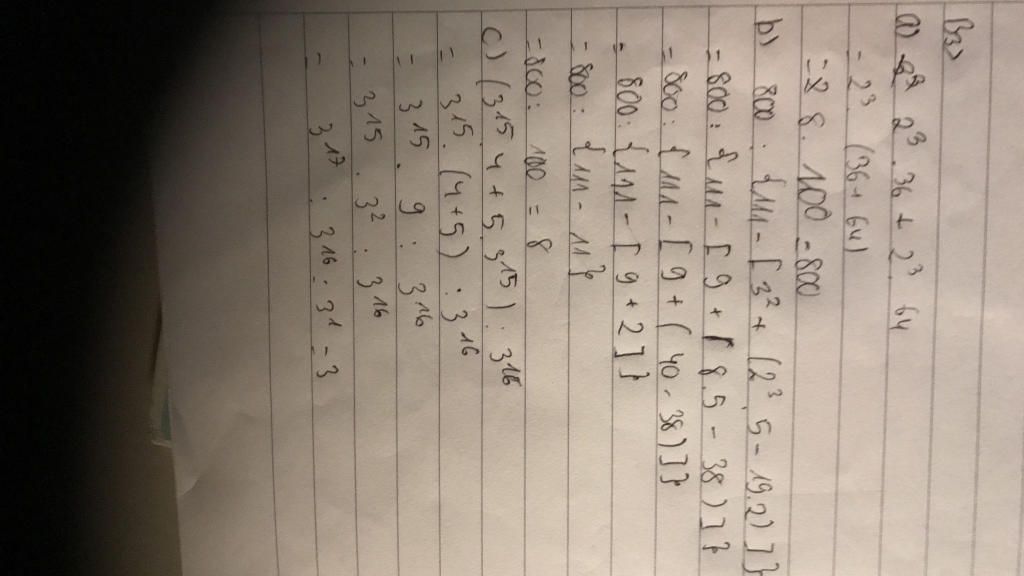 B3)
a) 2³ . 36 + 2³ . 64
= 2³ . (36 + 64)
= 8 . 100 = 800
b) 800 : {111 - [3² + (2³.5 - 19.2)]}
= 800 : {111 - [9 + (8.5 - 38)]}
= 800 : {111 - [9 + (40 - 38)]}
= 800 : {111 - [9 + 2]}
= 800 : {111 - 11}
= 800 : 100 = 8
c) (3¹⁵.4 + 5.3¹⁵) : 3¹⁶
= 3¹⁵ . (4+5) : 3¹⁶
= 3¹⁵ . 9 : 3¹⁶
= 3¹⁵ . 3² : 3¹⁶
= 3¹⁷ : 3¹⁶ = 3¹ = 3